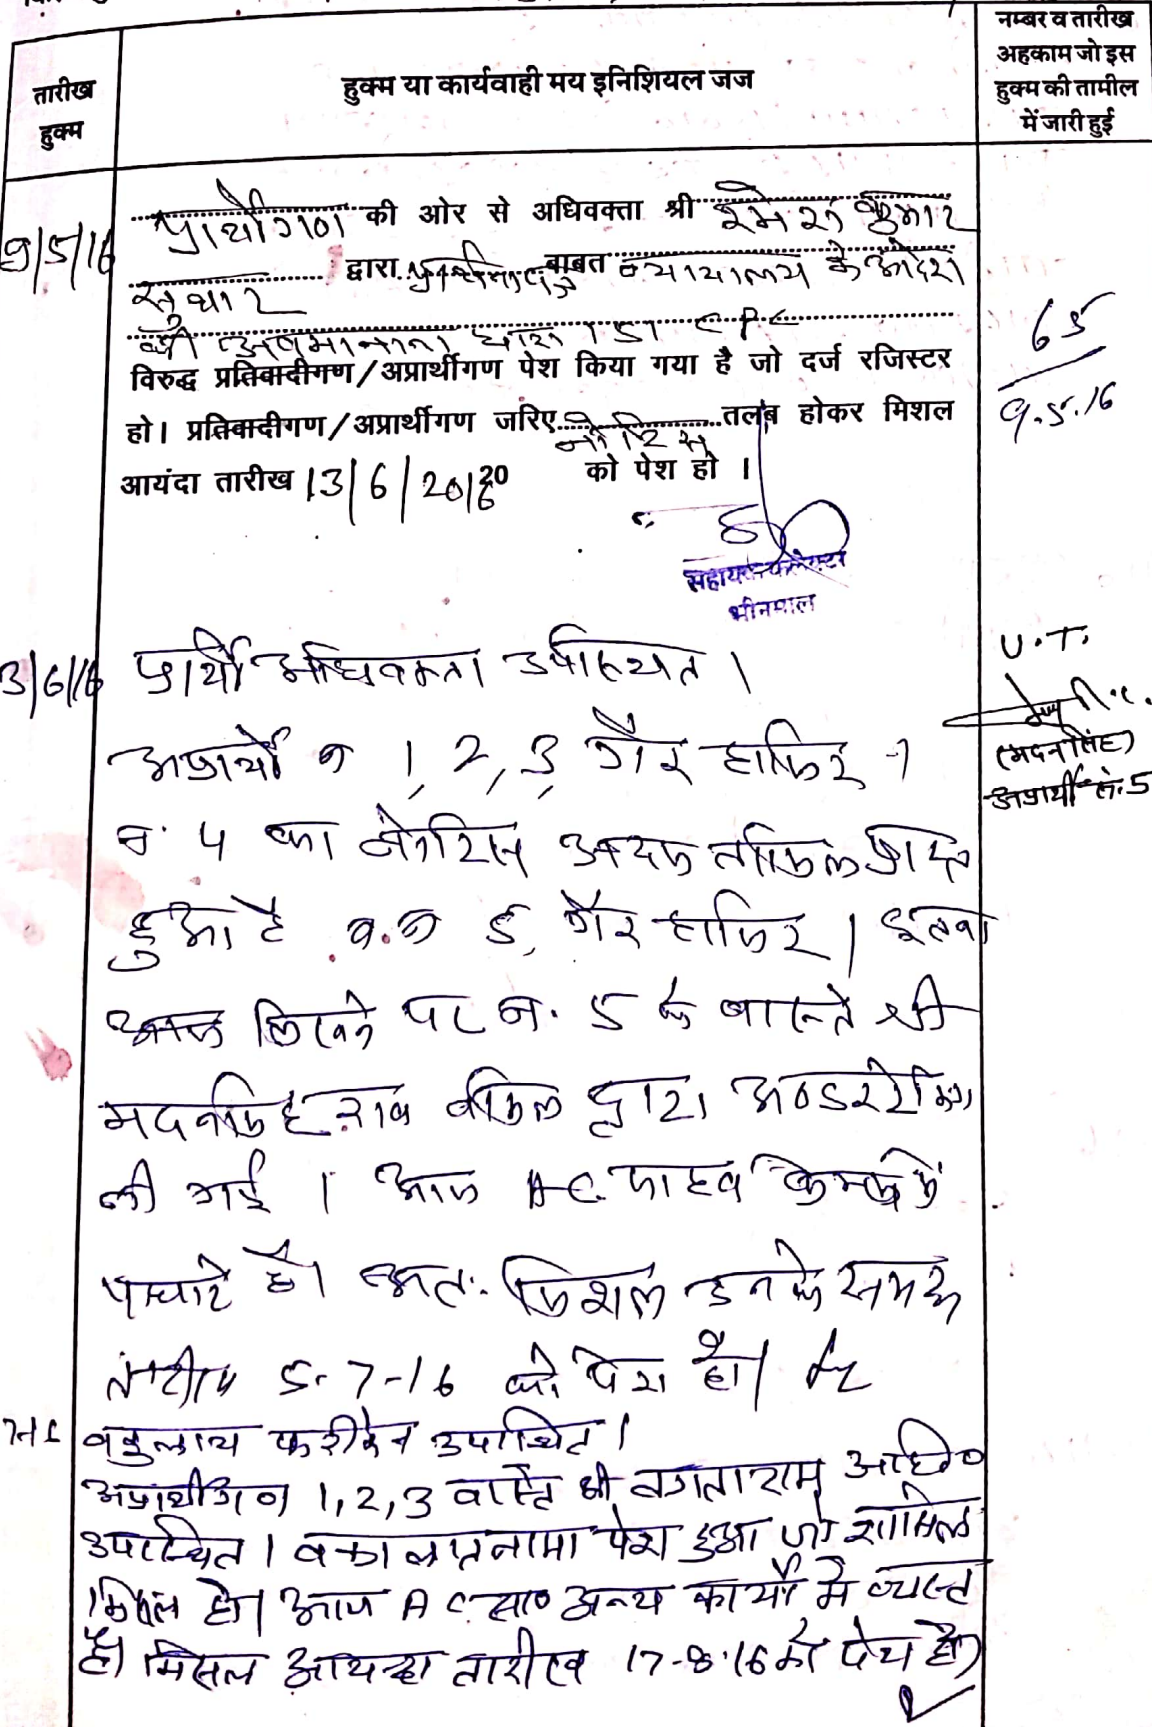 नम्बर व तारीख
अहकाम जो इस
हुक्म की तामील
में जारी हुई
तारीख
हुक्म
हुक्म या कार्यवाही मय इनिशियल जज
9/5/16
प्रार्थीगण की ओर से अधिवक्ता श्री रमेश कुमार
सुथार द्वारा प्रार्थनापत्र बाबत न्यायालय के आदेश
की अवमानना धारा 151 CPC
विरुद्ध प्रतिवादीगण/अप्रार्थीगण पेश किया गया है जो दर्ज रजिस्टर
हो। प्रतिवादीगण/अप्रार्थीगण जरिए नोटिस तलब होकर मिशल
आयंदा तारीख 13/6/2016 को पेश हो ।
65
9.5.16
सहायक कलेक्टर
भीनमाल
3/6/16
प्रार्थी अधिवक्ता उपस्थित ।
अप्रार्थी न 1, 2, 3, गैर हाजिर
न. 4 का नोटिस अदम तामिल प्राप्त
हुआ है व.न 5, गैर हाजिर । इतना
लिखने पर न. 5 के वास्ते श्री
मदनसिंह राव वकिल द्वारा अण्डरटेकिंग
ली गई । आज A.C. साहब केम्प में
पधारे है। अतः मिशल उनके समक्ष
तारीख 5-7-16 को पेश हो।
U.T.
(मदनसिंह)
अप्रार्थी सं. 5
वकुलाय फरीकेन उपस्थित ।
अप्रार्थीगण 1, 2, 3 वास्ते श्री वगताराम अधि०
उपस्थित । वकालतनामा पेश हुआ जो शामिल
मिसल हो। आज A C सा० अन्य कार्यों में व्यस्त
है। मिसल आयन्दा तारीख 17-8-16 को पेश हो